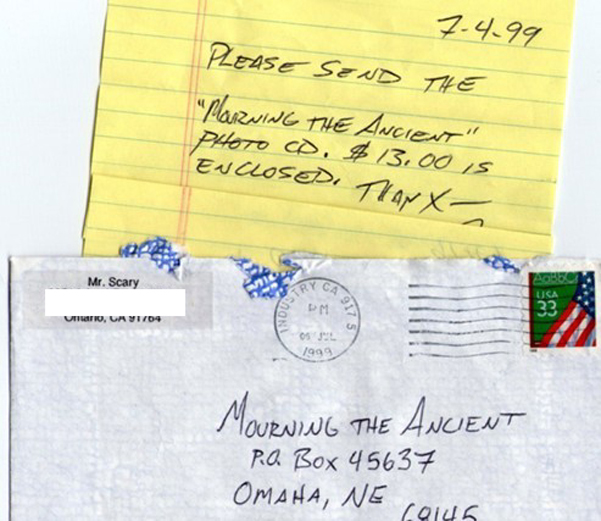 7-4-99
PLEASE SEND THE
"MOURNING THE ANCIENT"
PHOTO CD. $13.00 IS
ENCLOSED. THANX—
Mr. Scary
Ontario, CA 91764
INDUSTRY CA 917 5
PM
05 JUL
1999
AaBbCc
USA
33
MOURNING THE ANCIENT
P.O. BOX 45637
OMAHA, NE
68145